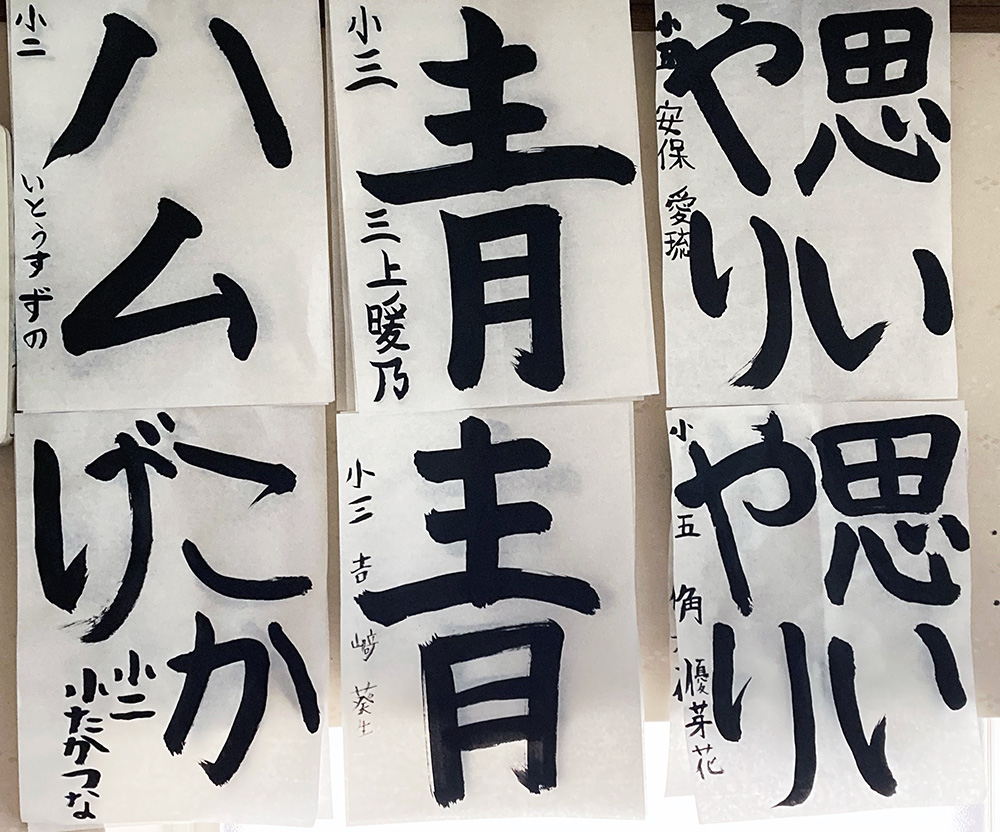 思い
やり
小五 安保 愛琉
青
小三 三上暖乃
ハム
小二 いとうすずの
思い
やり
小五 角 優芽花
青
小三 吉﨑 葵生
こか
げ
小二
小たかつな